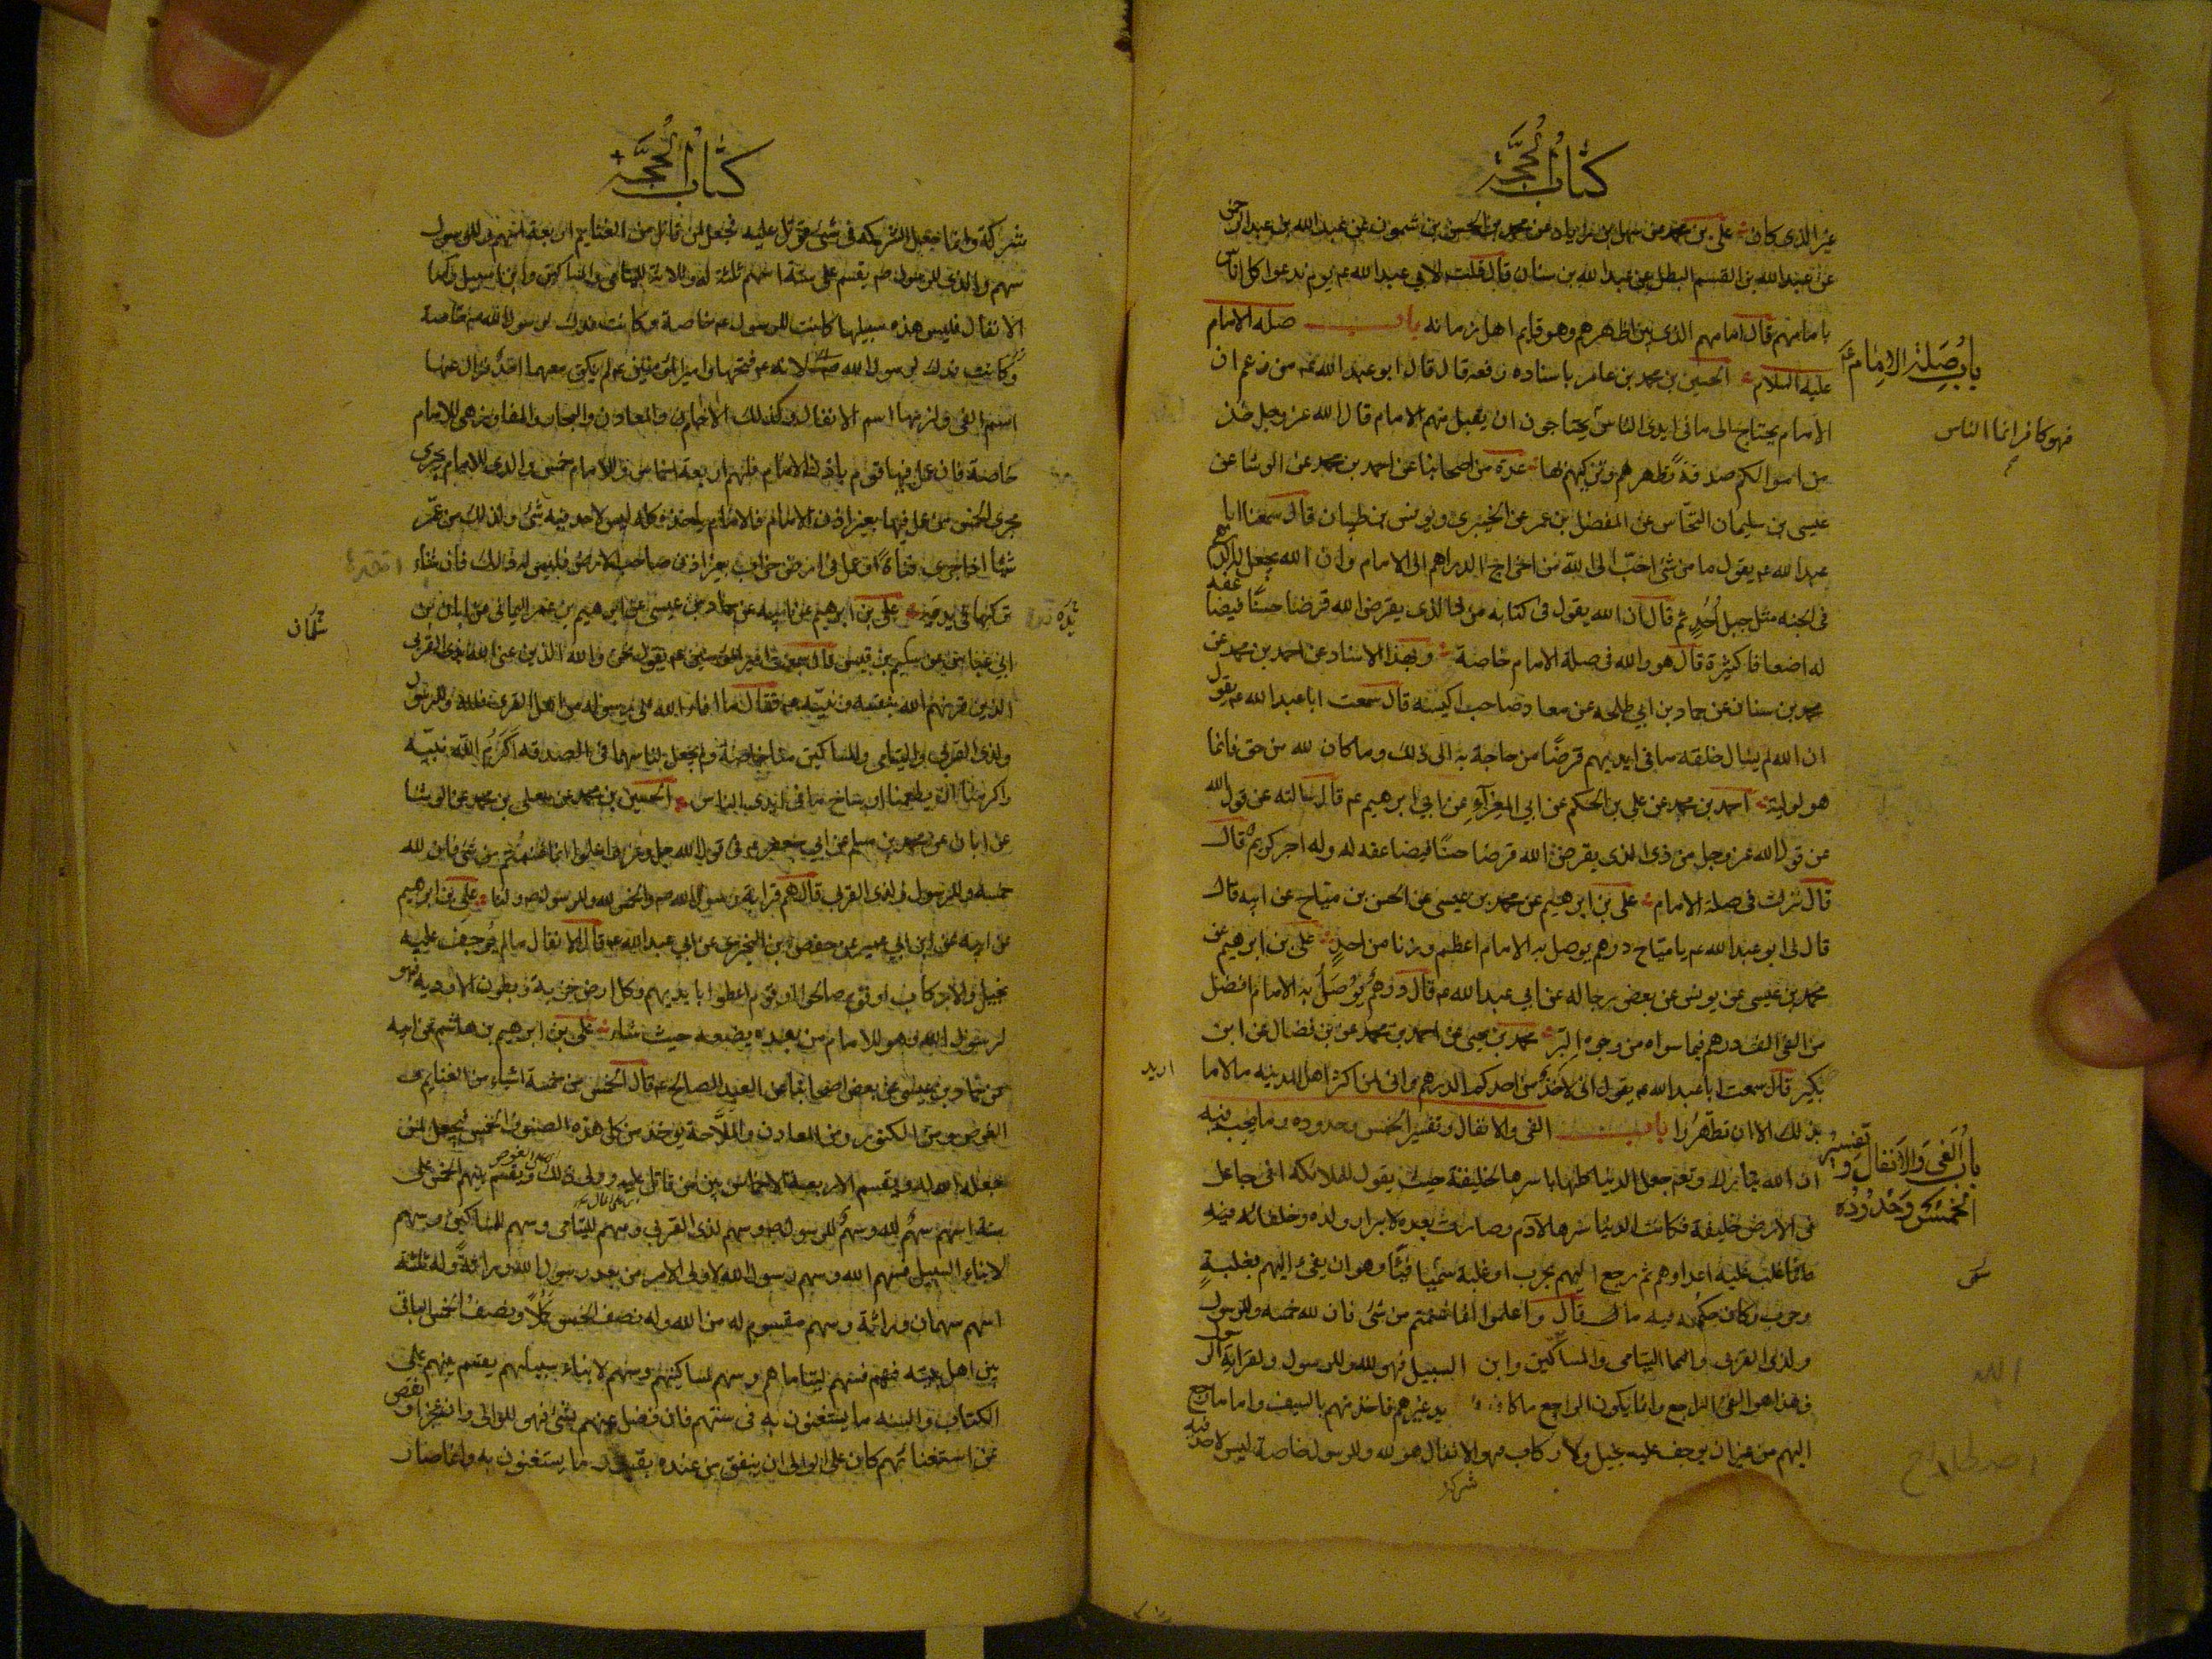 كتاب الحجة
غير الذى كان على بن محمد عن سهل بن زياد عن محمد بن الحسن بن شمون عن عبد الله بن عبد الرحمن
عن عبد الله بن القسم البطل عن عبد الله بن سنان قال قلت لابي عبد الله عم يوم ندعوا كل اناس
بامامهم قال امامهم الذى بين اظهرهم وهو قايم اهل زمانه باب صلة الامام
باب صلة الامام ع
عليه السلام الحسين بن محمد بن عامر باسناده رفعه قال قال ابو عبد الله عم من زعم ان
الامام يحتاج الى ما فى ايدى الناس يحتاجون ان يقبل منهم الامام قال الله عز وجل خذ
فهو كافر انما الناس
من اموالكم صدقةً تطهرهم وتزكيهم بها عدة من اصحابنا عن احمد بن محمد عن الوشا عن
عيسى بن سليمان النحّاس عن المفضل بن عمر عن الخيبرى ويونس بن ظبيان قال سمعنا ابا
عبد الله عم يقول ما من شئ احبّ الى الله من اخراج الدراهم الى الامام وان الله يجعل له الدرهم
فى الجنه مثل جبل اُحُدٍ ثم قال ان الله يقول فى كتابه من ذا الذى يقرض الله قرضا حسنًا فيضاعفه
له اضعافا كثيرة قال هو والله فى صلة الامام خاصة وبهذا الاسناد عن احمد بن محمد عن
محمد بن سنان عن حماد بن ابي طلحه عن معاد صاحب اكيسه قال سمعت ابا عبد الله عم يقول
ان الله لم يسال خلقه ما فى ايديهم قرضًا من حاجة به الى ذلك وما كان لله من حق فانما
هو لوليّه احمد بن محمد عن علي بن الحكم عن ابي المغرآءِ عن ابي ابرهيم عم قال سالته عن قول الله
عن قول الله عز وجل من ذى الذى يقرض الله قرضا حسنًا فيضاعفه له وله اجر كريم قال
قال نزلت فى صلة الامام على بن ابرهيم عن محمد بن عيسى عن الحسن بن مياح عن ابيه قال
قال لى ابو عبد الله عم يا مياح درهم يوصل به الامام اعظم وزنا من احدٍ على بن ابرهيم عن
محمد بن عيسى عن يونس عن بعض رجاله عن ابي عبد الله عم قال درهمٌ يُوصَلُ به الامام افضل
من الفى الف درهم فيما سواه من وجوه البِرّ محمد بن يحيى عن احمد بن محمد عن بن فضال عن ابن
بكير قال سمعت ابا عبد الله عم يقول انى لآخذ من احدكم الدرهم وانى لمن اكثر اهل المدينه مالا ما
اريد
بذلك الا ان تطهروا باب الفى والانفال وتفسير الخمس وحدوده وما يجب فيه
باب الفى والانفال وتفسير
الخمس وحدوده
ان الله تبارك وتعم جعل الدنيا كلها باسرها لخليفته حيث يقول للملائكه انى جاعل
فى الارض خليفة فكانت الدنيا باسرها لآدم وصارت بعده لابرار ولده وخلفائه فيه
فما غلب عليه اعداوهم ثم رجع اليهم بحرب او غلبة سمّيا فيئًا وهو ان يفئ اليهم بغلبةٍ
سمى
وحرب وكان حكمه فيه ما قال واعلموا انما غنمتم من شئ فان لله خمسه وللرسول
ولذى القربى واليتامى والمساكين وابن السبيل فهو لله وللرسول ولقرابة الرسول
فهذا هو الفئ الراجع وانما يكون الراجع ما كان فى يد غيرهم فاخذ منهم بالسيف واما ما رجع
اليهم من غير ان يوجف عليه بخيل ولا ركاب فهو الانفال هو لله وللرسول خاصة ليس لاحد فيه
شركة
كتاب الحجة
شركة وانما جعل الشركه فى شئ قوتل عليه فجعل لمن قاتل من الغنايم اربعة اسهم وللرسول
سهم والذى للرسول صم يقسم على ستة اسهم ثلثة له وثلاثة لليتامى والمساكين وابن السبيل واما
الانفال فليس هذه سبيلها كانت للرسول عم خاصة وكانت فدك لرسول الله صم خاصة
وكانت فدك لرسول الله صم لانه عم فتحها وامير المومنين عم لم يكن معهما احدٌ فزال عنها
اسم الفى ولزمها اسم الانفال وكذلك الآجام والمعادن والبحار والمفاوز هى للامام
خاصة فان عمل فيها قوم باذن الامام فلهم اربعة اخماس وللامام خمس والذى للامام يجرى
مجرى الخمس ومن عمل فيها بغير اذن الامام فالامام ياخذه كله ليس لاحد فيه شئ وكذلك من عمّر
شئا او اجرى قناةً او عمل فى ارض خراب بغير اذن صاحب الارض فليس له ذلك فان شاء
تركها فى يده على بن ابرهيم عن ابيه عن حماد بن عيسى عن ابرهيم بن عمر اليمانى عن ابان بن
ابي عياش عن سليم بن قيس قال سمعت امير المومنين عم يقول نحن والله الذين عنى الله بذى القربى
الذين قرنهم الله بنفسه ونبيّه صم فقال ما افاء الله على رسوله من اهل القرى فلله وللرسول
ولذى القربى واليتامى والمساكين منا خاصة ولم يجعل لنا سهما فى الصدقه اكرم الله نبيّه
واكرمنا ان يطعمنا اوساخ ما فى ايدى الناس الحسين بن محمد عن معلى بن محمد عن الوشا
عن ابان عن محمد بن مسلم عن ابي جعفر عم فى قول الله جل وعز واعلموا انما غنمتم من شئ فان لله
خمسه وللرسول ولذى القربى قال هم قرابة رسول الله صم والخمس لله وللرسول صم ولنا على بن ابرهيم
عن ابيه عن ابن ابي عمير عن حفص بن البخترى عن ابي عبد الله عم قال الانفال ما لم يُوجَف عليه
بخيل ولا ركاب او قوم صالحوا او قوم اعطوا بايديهم وكل ارض خربة وبطون الاوديه فهو
لرسول الله وهو للامام من بعده يضعه حيث شاء على بن ابرهيم بن هاشم عن ابيه
عن حماد بن عيسى عن بعض اصحابنا عن العبد الصالح عم قال الخمس من خمسة اشياء من الغنايم و
الغوص ومن الكنوز ومن المعادن والملّاحة يوخذ من كل هذه الصنوف الخمس فيجعل لمن
جعله الله له ويقسم الاربعة الاخماس بين من قاتل عليه وولى ذلك ويقسم بينهم الخمس على
ستة اسهم سهمٌ لله وسهمٌ للرسول صم وسهم لذى القربى وسهم لليتامى وسهم للمساكين وسهم
لابناء السبيل فسهم الله وسهم رسول الله لاولى الامر من بعد رسول الله وراثةً وله ثلثة
اسهم سهمان وراثة وسهم مقسوم له من الله وله نصف الخمس كَمَلًا ونصفُ الخمس الباقى
بين اهل بيته فسهم ليتاماهم وسهم لمساكينهم وسهم لابناء سبيلهم يقسم بينهم على
الكتاب والسنه ما يستغنون به فى سنتهم فان فضل عنهم شئ فهو للوالى وان عجز او نقص
عن استغنائهم كان على الوالى ان ينفق من عنده بقدر ما يستغنون به وانما صار